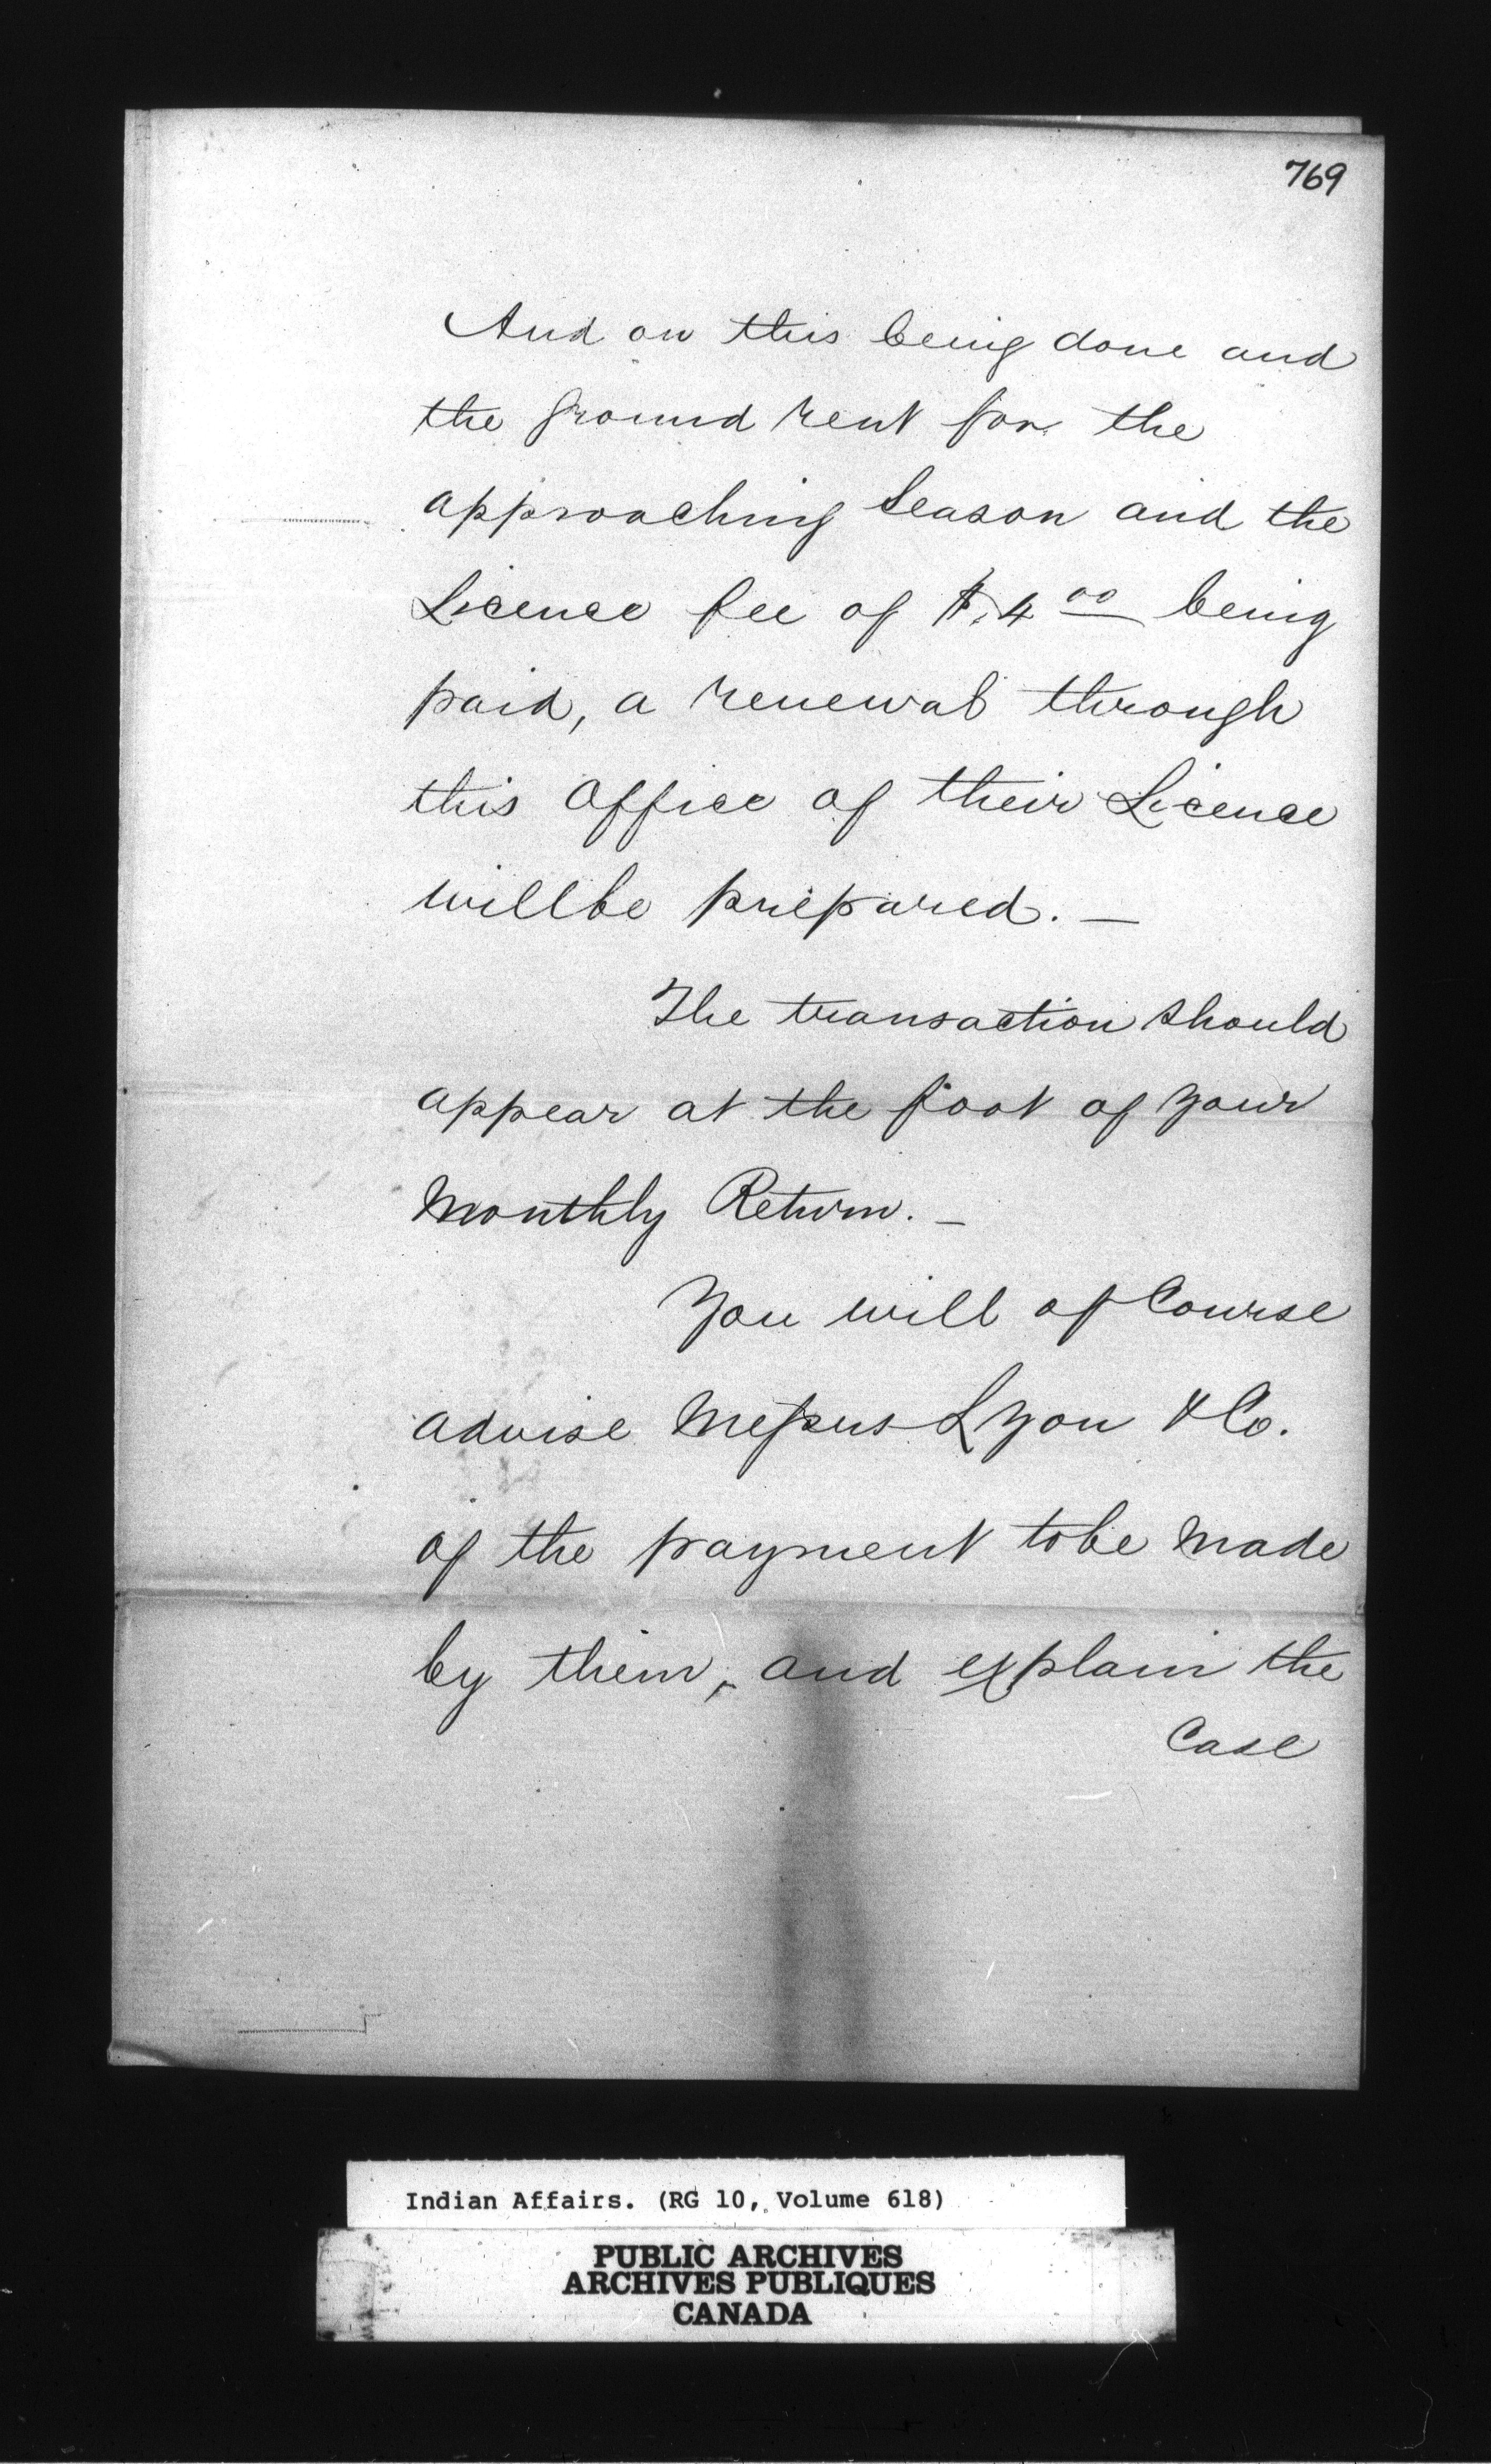 769
And on this being done and
the ground rent for the
approaching Season and the
Licence fee of $.4 00 being
paid, a renewal through
this Office of their Licence
will be prepared. —
The transaction should
appear at the foot of your
Monthly Return. —
You will of Course
advise Messrs Lyon & Co.
of the payment to be made
by them, and explain the
Case
Indian Affairs. (RG 10, Volume 618)
PUBLIC ARCHIVES
ARCHIVES PUBLIQUES
CANADA